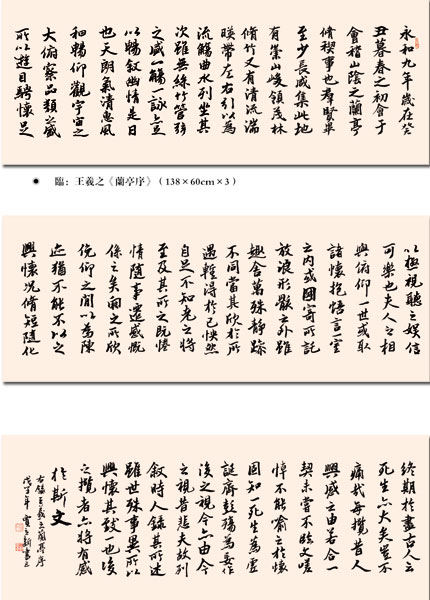 永和九年歲在癸
丑暮春之初會于
會稽山陰之蘭亭
脩稧事也羣賢畢
至少長咸集此地
有崇山峻領茂林
脩竹又有清流湍
暎帶左右引以為
流觴曲水列坐其
次雖無絲竹管弦
之盛一觴一詠亦足
以暢敘幽情是日
也天朗氣清惠風
和暢仰觀宇宙之
大俯察品類之盛
所以遊目騁懷足
臨：王羲之《蘭亭序》（138×60cm×3）
以極視聽之娛信
可樂也夫人之相
與俯仰一世或取
諸懷抱悟言一室
之內或因寄所託
放浪形骸之外雖
趣舍萬殊靜躁
不同當其欣於所
遇輕得於己怏然
自足不知老之將
至及其所之既惓
情隨事遷感慨
係之矣向之所欣
俛仰之間以為陳
迹猶不能不以之
興懷況脩短隨化
終期於盡古人云
死生亦大矣豈不
痛哉每攬昔人
興感之由若合一
契未嘗不臨文嗟
悼不能喻之於懷
固知一死生為虛
誕齊彭殤為妄作
後之視今亦由今
之視昔悲夫故列
敘時人錄其所述
雖世殊事異所以
興懷其致一也後
之攬者亦將有感
於斯文
右錄王羲之蘭亭序